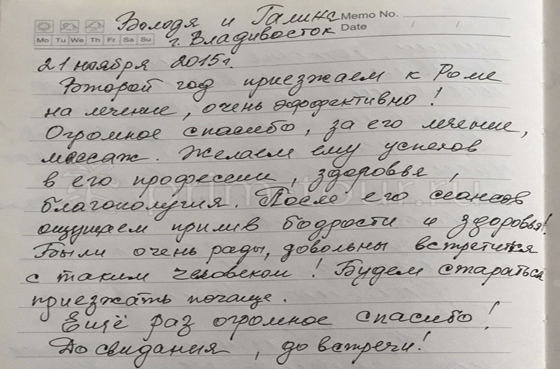 Володя и Галина Memo No.
г. Владивосток Date
Mo Tu We Th Fr Sa Su
21 ноября 2015г.
Второй год приезжаем к Роме
на лечение, очень эффективно!
Огромное спасибо, за его лечение,
массаж. Желаем ему успехов
в его профессии, здоровья,
благополучия. После его сеансов
ощущаем прилив бодрости и здоровья!
Были очень рады, довольны встретится
с таким человеком! Будем стараться
приезжать почаще.
Ещё раз огромное спасибо!
До свидания, до встречи!